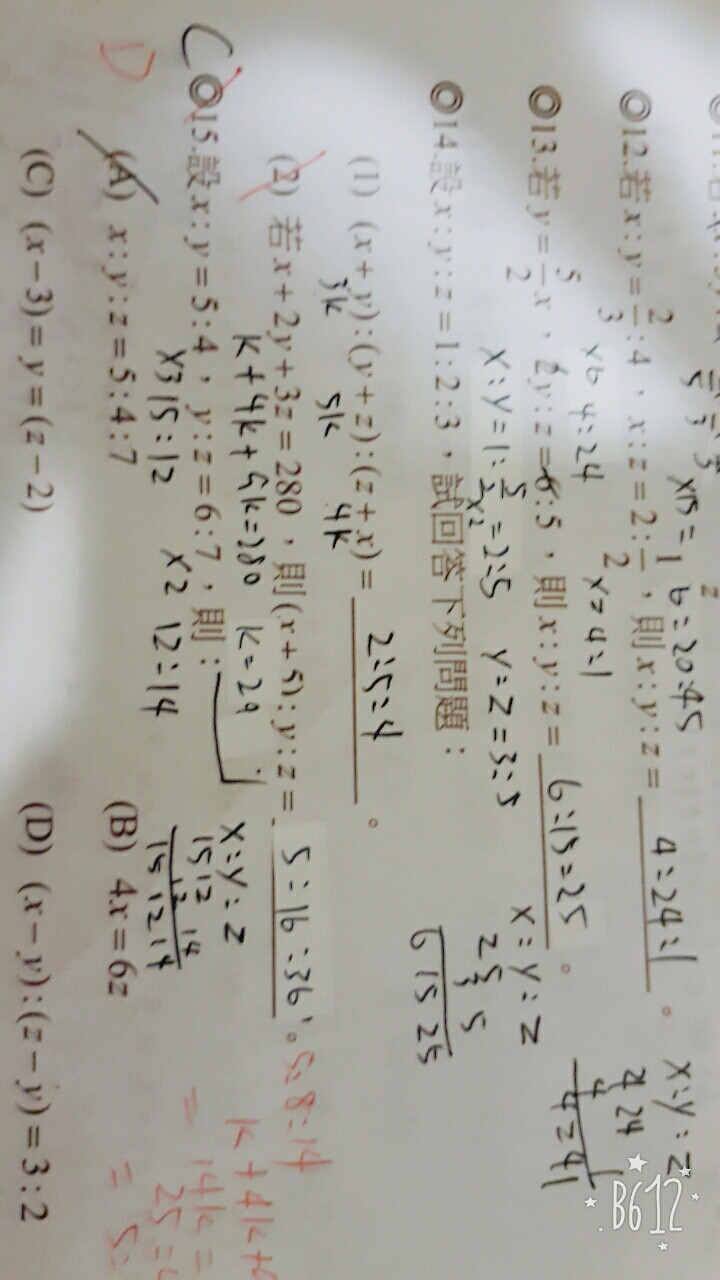 x15 = 1 6 = 20:45
◎12.若 x:y=2/3:4，x:z=2:1/2，則 x:y:z= 4:24:1 。
x6 4:24 x=4:1
x:y:z
4 24
4 1
◎13.若 y=5/2x，2y:z=6:5，則 x:y:z= 6:15:25 。
x:y=1:5/2 x2 =2:5 y=z=3:5
x:y:z
2 5
3 5
6 15 25
◎14.設 x:y:z=1:2:3，試回答下列問題：
(1) (x+y):(y+z):(z+x)= 2:5:4 。
3k 5k 4k
(2) 若 x+2y+3z=280，則 (x+5):y:z= 5:16:36 。 5:8:14
k+4k+9k=280 k=29
k+4k+9
= 14k=
C ◎15.設 x:y=5:4，y:z=6:7，則：
D
x3 15:12 x2 12:14
x:y:z
15 12
12 14
15 12 14
(A) x:y:z=5:4:7
(B) 4x=6z
(C) (x-3)=y=(z-2)
(D) (x-y):(z-y)=3:2
B612